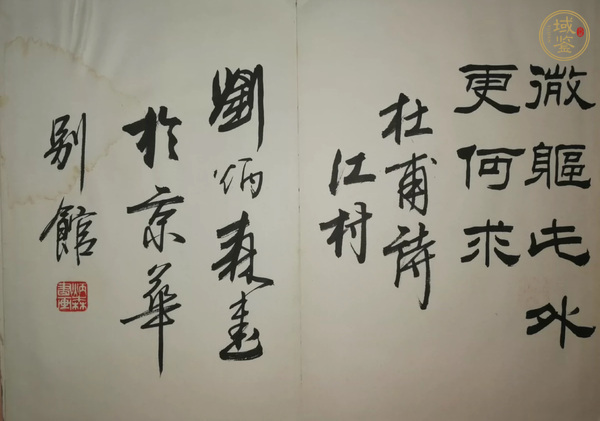 微軀此外
更何求
杜甫詩
江村
劉炳森書
於京華
別館
炳森
書画
域鉴